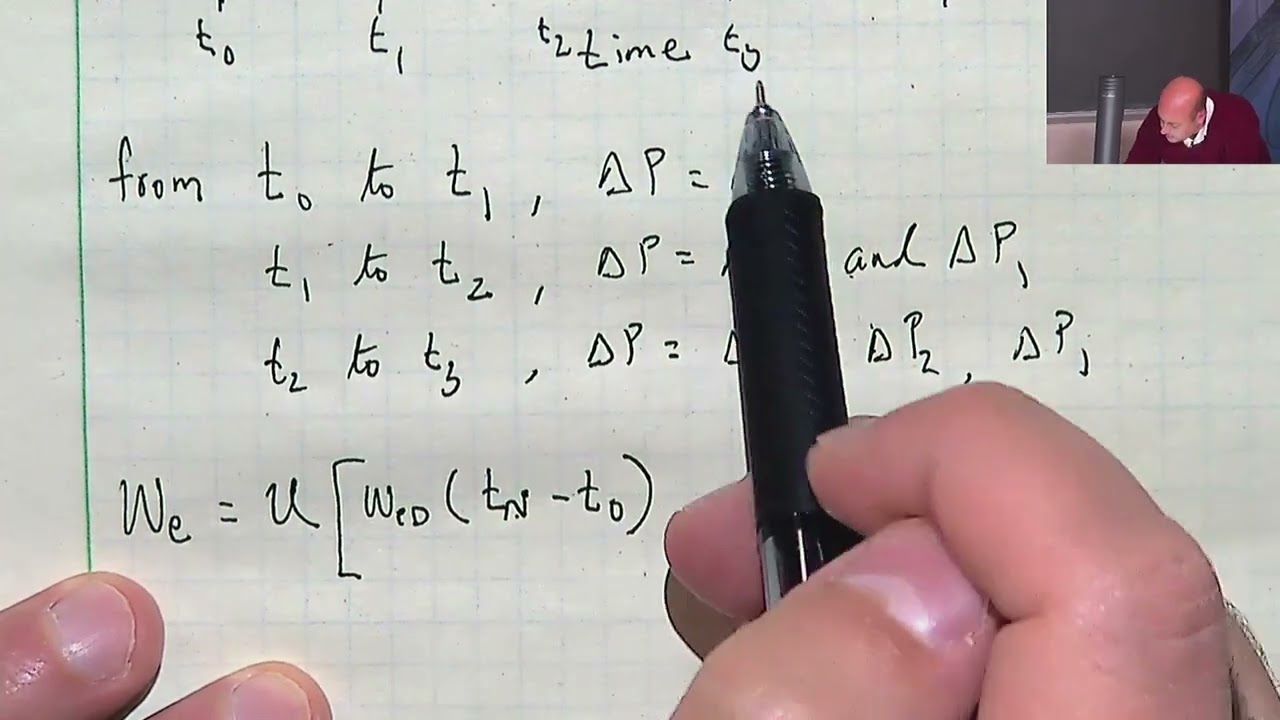 t₀ t₁ t₂ time t₃
from t₀ to t₁ , ΔP =
t₁ to t₂ , ΔP = and ΔP₁
t₂ to t₃ , ΔP = ΔP₂ , ΔP₁
We = U [ WeD ( tN - t₀ )